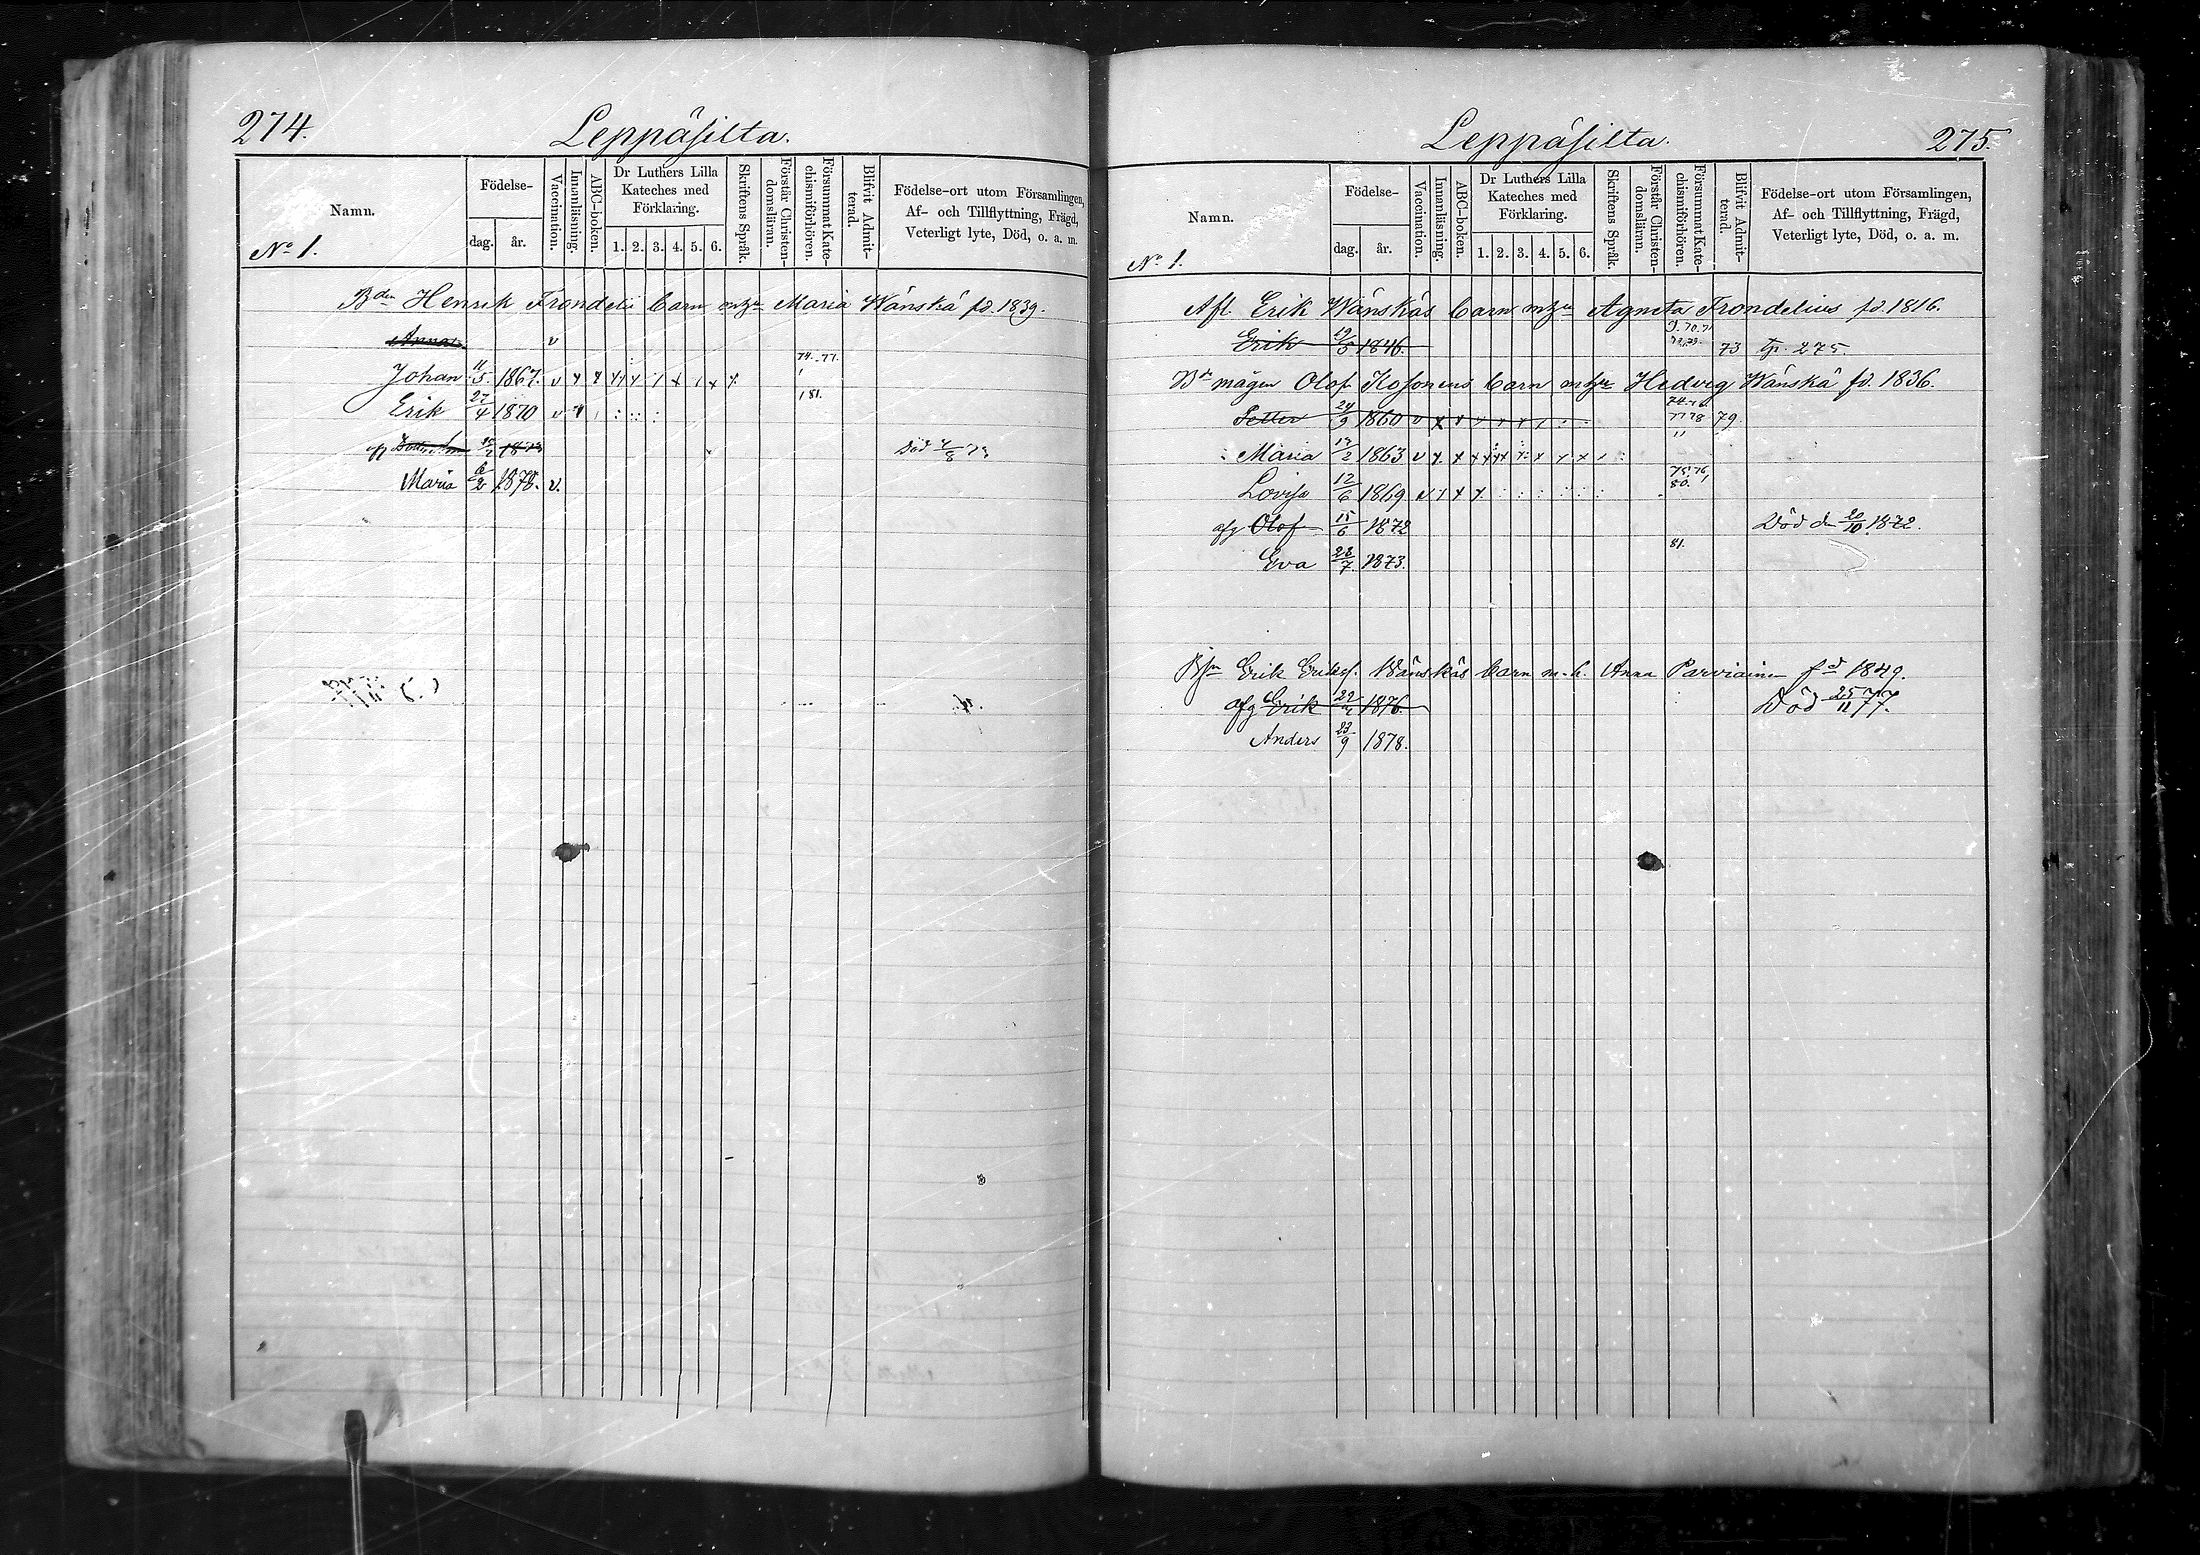 274.
Leppäsilta.
Namn.
Födelse-
dag.
år.
Vaccination.
Innanläsning.
ABC-boken.
Dr Luthers Lilla
Kateches med
Förklaring.
1. 2. 3. 4. 5. 6.
Skriftens Språk.
Förstår Christen-
domsläran.
Försummat Kate-
chismiförhören.
Blifvit Admit-
terad.
Födelse-ort utom Församlingen,
Af- och Tillflyttning, Frägd,
Veterligt lyte, Död, o. a. m.
No 1.
Bden Henrik Frondelii barn Maria Wänskä fd. 1839.
Anna v
Johan 11/5 1867. v 74. 77.
Erik 27/4 1870 v 81.
1873 Död 4/8 73
Maria 6/2 1878. v.
Leppäsilta.
275.
Namn.
Födelse-
dag.
år.
Vaccination.
Innanläsning.
ABC-boken.
Dr Luthers Lilla
Kateches med
Förklaring.
1. 2. 3. 4. 5. 6.
Skriftens Språk.
Förstår Christen-
domsläran.
Försummat Kate-
chismiförhören.
Blifvit Admit-
terad.
Födelse-ort utom Församlingen,
Af- och Tillflyttning, Frägd,
Veterligt lyte, Död, o. a. m.
No 1.
Afl. Erik Wänskäs barn Agneta Frondelius fd. 1816.
Erik 19/5 1846. 73 275.
mågen Olof Kosonens barn Hedvig Wänskä fd. 1836.
Petter 24/9 1860 v 77 78 79
Maria 17/2 1863 v
Lovisa 12/6 1869 v 75. 76, 80.
afg Olof 15/6 1872 Död den 20/10 1872.
Eva 28/7 1873. 81.
Erik Eriks. Wänskäs barn m. h. Anna Parviainen fd 1849.
afg Erik 1876. Död 25/11 77.
Anders 23/9 1878.